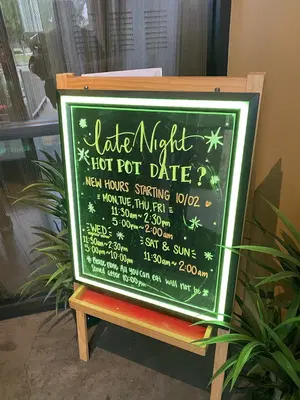 Late Night
HOT POT DATE?
NEW HOURS STARTING 10/02
MON, TUE, THU, FRI
11:30am~2:30pm
5:00pm~2:00am
WED
11:30am~2:30pm
5:00pm~10:00pm
SAT & SUN
11:30am~2:00am
*Please note All you can eat will not be
served after 10:00pm